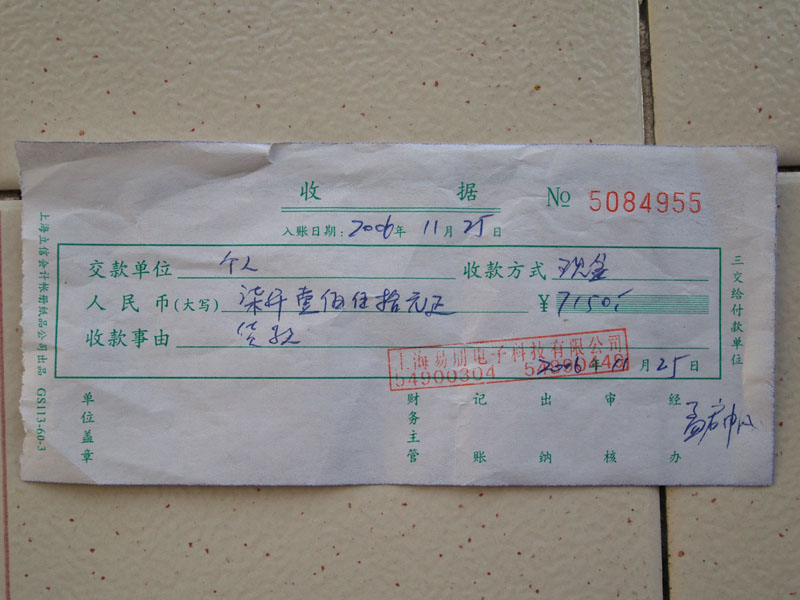 收 据 № 5084955
入账日期: 2006年 11月 25日
交款单位 个人 收款方式 现金
人民币(大写) 柒仟壹佰伍拾元正 ¥7150:
收款事由 货款
上海易朋电子科技有限公司
54900304
2006年 11月 25日
单位盖章 财务主管 记账 出纳 审核 经办
三交给付款单位
上海立信会计帐册纸品公司出品 GS113-60-3